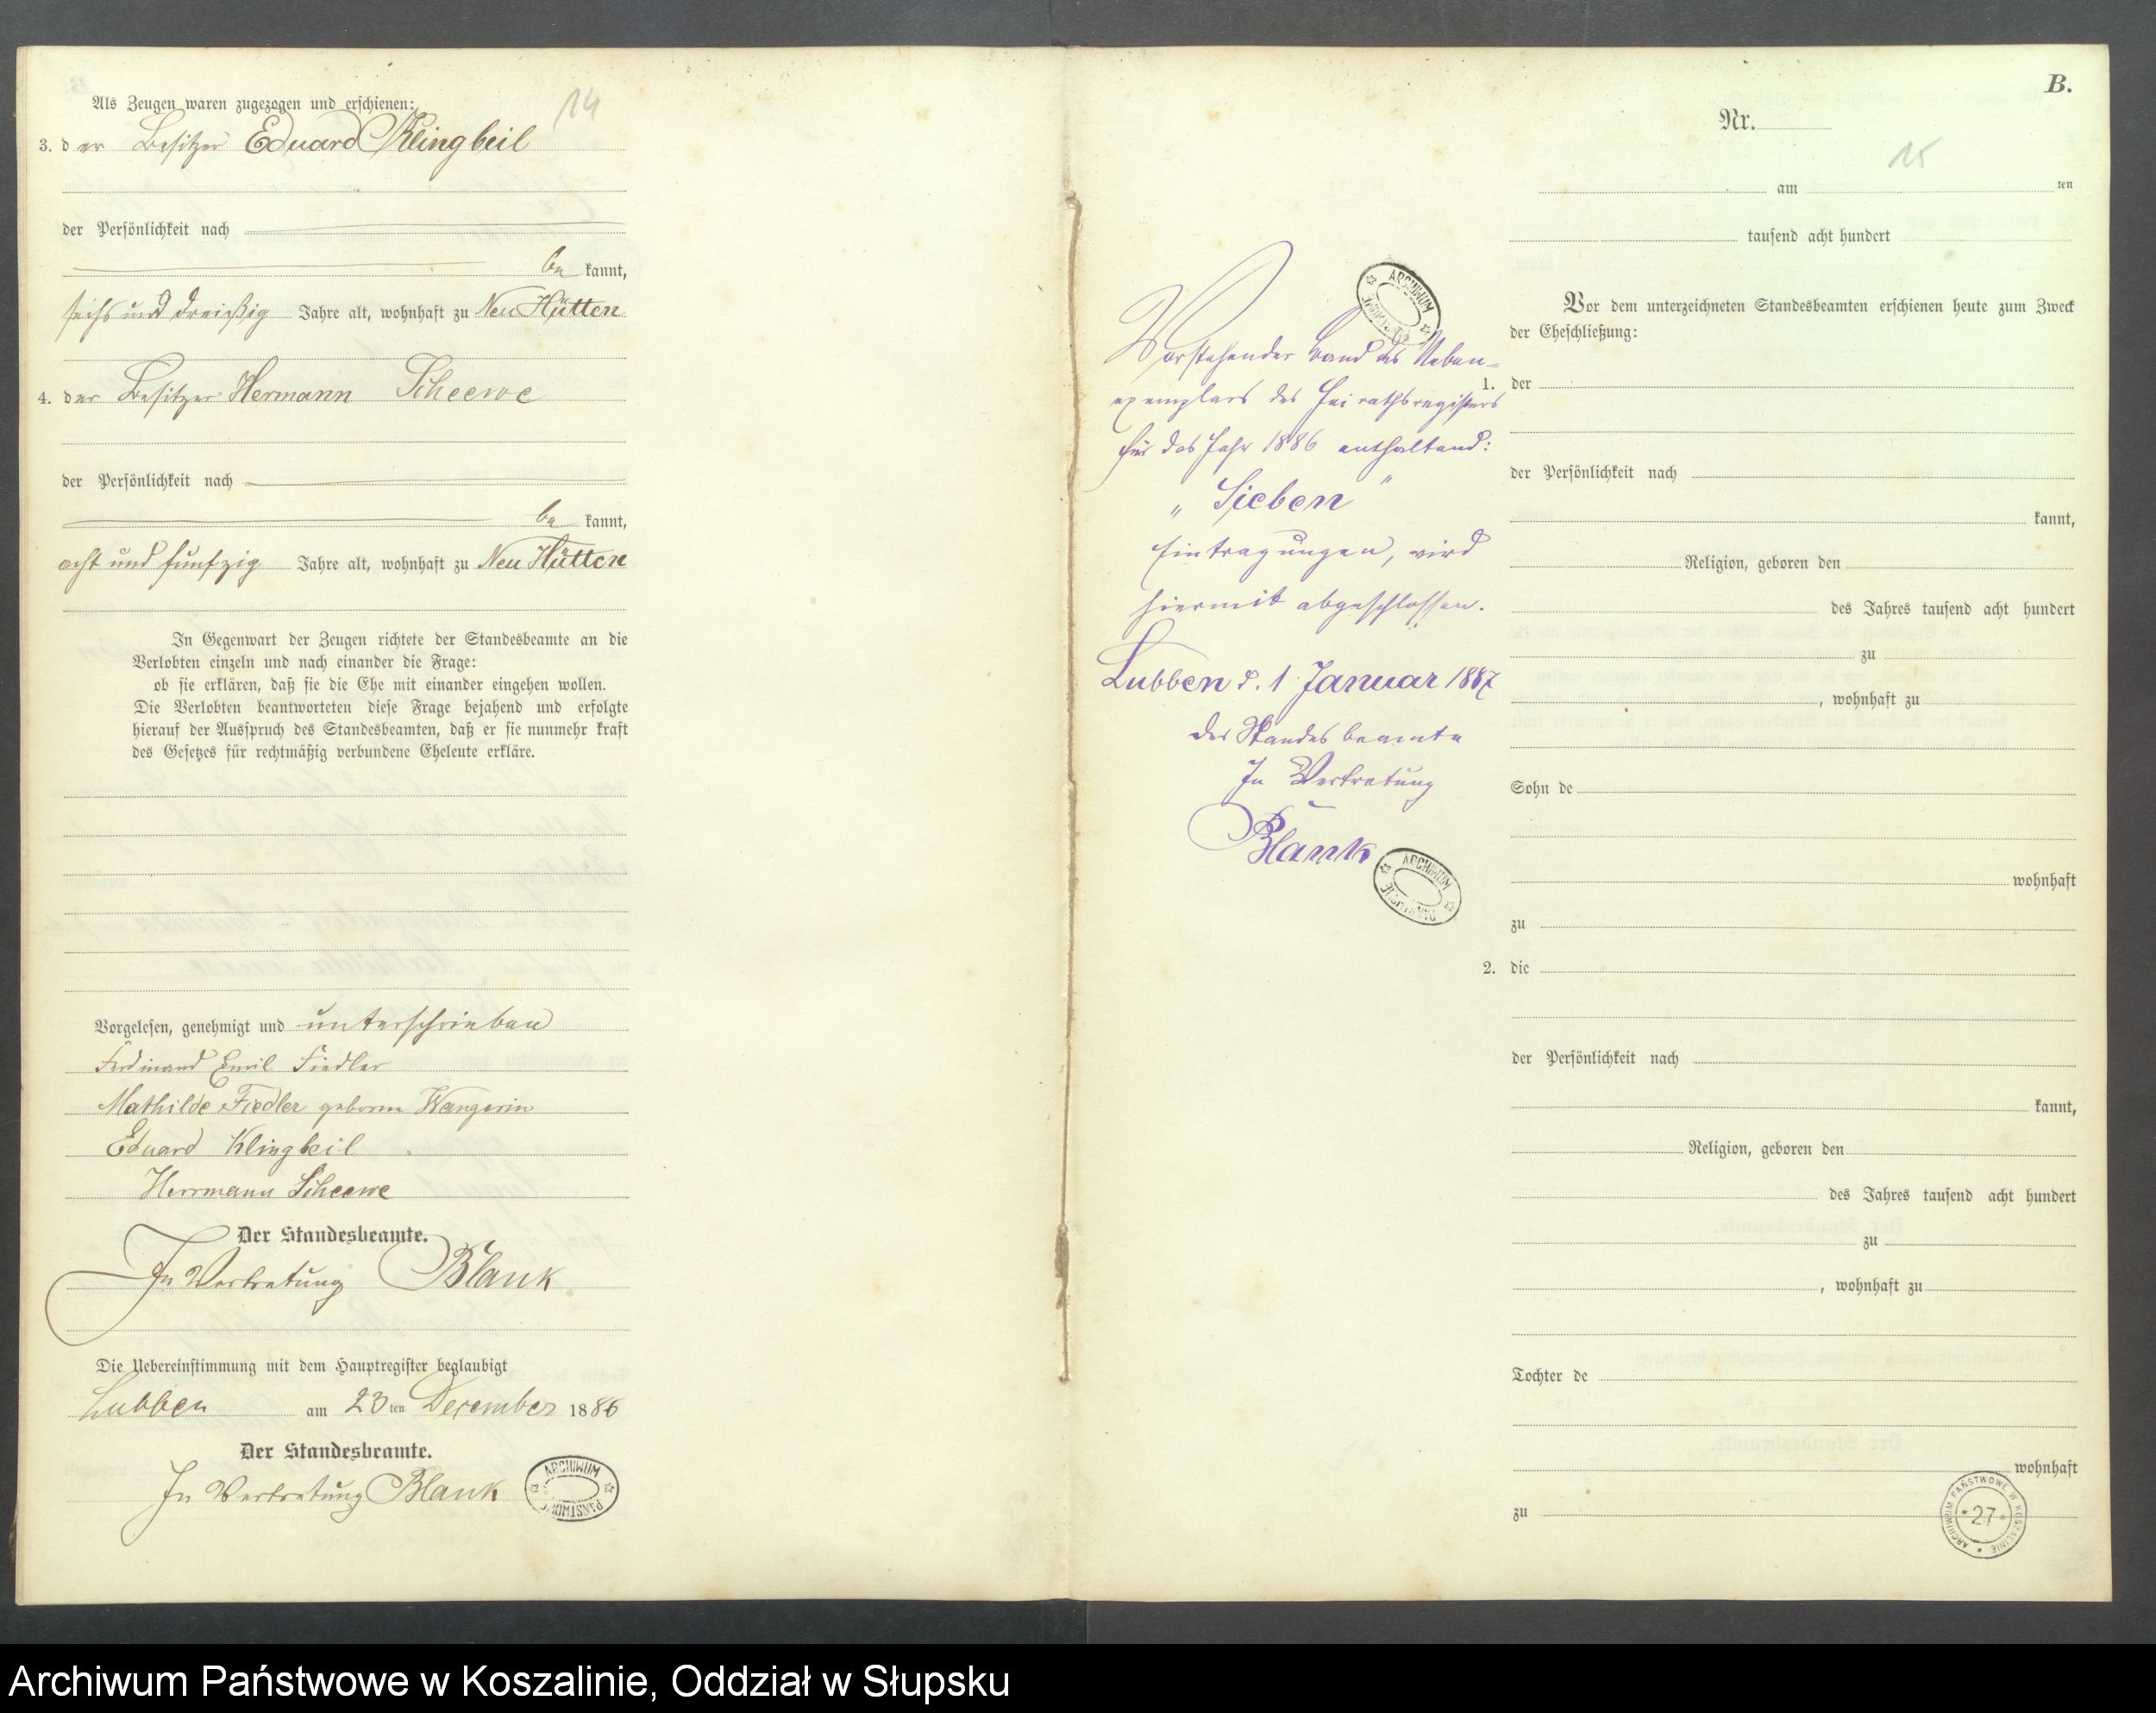 14
Als Zeugen waren zugezogen und erschienen:
3. der Besitzer Eduard Klingbeil
der Persönlichkeit nach
be kannt,
sechs und dreißig Jahre alt, wohnhaft zu Neu Hütten
4. der Besitzer Hermann Scheewe
der Persönlichkeit nach
be kannt,
acht und funfzig Jahre alt, wohnhaft zu Neu Hütten
In Gegenwart der Zeugen richtete der Standesbeamte an die
Verlobten einzeln und nach einander die Frage:
ob sie erklären, daß sie die Ehe mit einander eingehen wollen.
Die Verlobten beantworteten diese Frage bejahend und erfolgte
hierauf der Ausspruch des Standesbeamten, daß er sie nunmehr kraft
des Gesetzes für rechtmäßig verbundene Eheleute erkläre.
Vorgelesen, genehmigt und unterschrieben
Ferdinand Emil Fiedler
Mathilde Fiedler geborne Wangerin
Eduard Klingbeil
Herrmann Scheewe
Der Standesbeamte.
In Vertretung Blank
Die Uebereinstimmung mit dem Hauptregister beglaubigt
Lubben am 23ten December 1886
Der Standesbeamte.
In Vertretung Blank
ARCHIWUM PAŃSTWOWE
ARCHIWUM PAŃSTWOWE
Vorstehender Band des Neben-
exemplars des Heirathsregisters
für das Jahr 1886 enthaltend:
„Sieben"
Eintragungen, wird
hiermit abgeschlossen.
Lubben d. 1 Januar 1887
Der Standesbeamte
In Vertretung
Blank
ARCHIWUM PAŃSTWOWE
B.
Nr.
15
am ten
tausend acht hundert
Vor dem unterzeichneten Standesbeamten erschienen heute zum Zweck
der Eheschließung:
1. der
der Persönlichkeit nach
kannt,
Religion, geboren den
des Jahres tausend acht hundert
zu
, wohnhaft zu
Sohn de
wohnhaft
zu
2. die
der Persönlichkeit nach
kannt,
Religion, geboren den
des Jahres tausend acht hundert
zu
, wohnhaft zu
Tochter de
wohnhaft
zu
ARCHIWUM PAŃSTWOWE W KOSZALINIE
27
Archiwum Państwowe w Koszalinie, Oddział w Słupsku